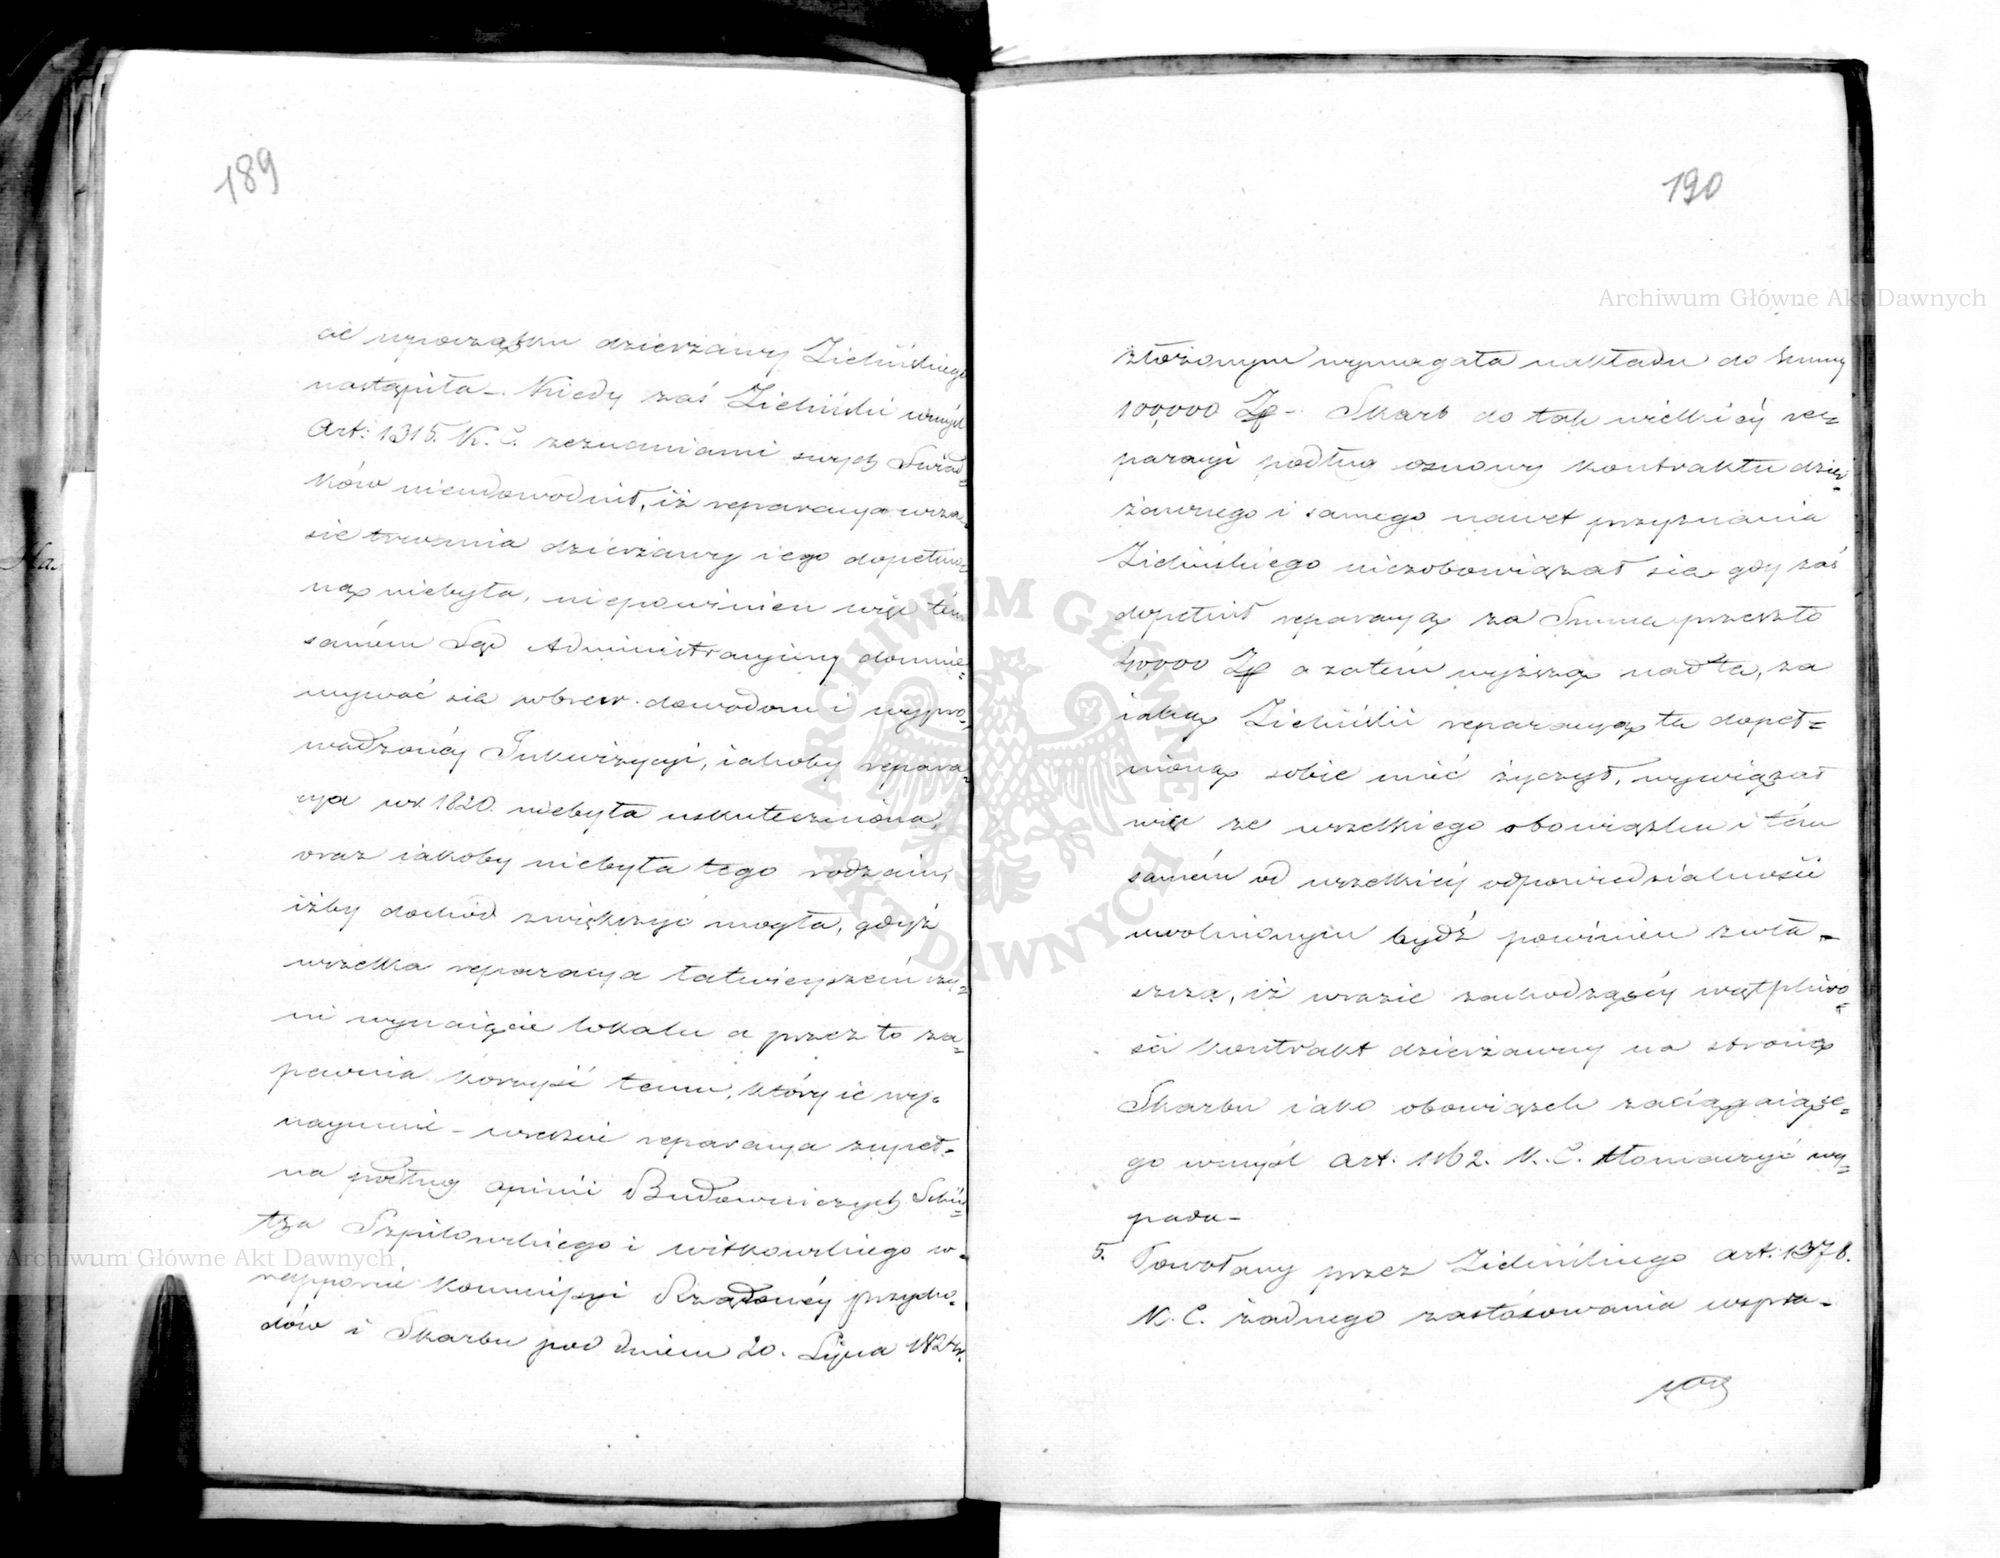 189
cie wpoczątku dzierżawy Zielińskiego
nastąpiła – Kiedy zaś Zieliński wmyśl
Art: 1315. K. C. zeznaniami swych Świad=
ków nieudowodnił, iż reparacya wcza=
sie trwania dzierżawy iego dopełnio=
ną niebyła, niepowinien więc tém
samém Sąd Administracyiny domnie=
mywać sie wbrew dowodom i wypro=
wadzonéy Inkwizycyi, iakoby repara=
cya w r. 1820. niebyła uskuteczniona,
oraz iakoby niebyła tego rodzaiu,
iżby dochód zwiększyć mogła, gdyż
wszelka reparacya łatwieyszém czy=
ni wynaięcie lokalu a przez to za=
pewnia korzyść temu, który ie wy=
naymuie – wreście reparacya zupeł=
na podług opinii Budowniczych Schü=
tza Szpilowskiego i Witkowskiego w=
rapporcie Kommissyi Rządowéy przycho=
dów i Skarbu pod dniem 20. Lipca 1824 r.
190
złożonym wymagała nakładu do Summy
100,000 Zp –. Skarb do tak wielkiéy re=
paracyi podług osnowy kontraktu dzier=
żawnego i samego nawet przyznania
Zielińskiego niezobowiązał sie gdy zaś
dopełnił reparacyą za Summe przeszło
40,000 Zp a zatém wyższą nad tą, za
iaką Zieliński reparacyą tą dopeł=
nioną sobie mieć życzył, wywiązał
więc ze wszelkiego obowiązku i tém
samém od wszelkiéy odpowiedzialności
uwolnionym bydź powinien zwła=
szcza, iż wrazie zachodzącéy wątpliwo=
ści kontrakt dzierżawny na stronę
Skarbu iako obowiązek zaciągaiące=
go wmyśl art. 1162. K. C. tłomaczyć wy=
pada –
5. Powołany przez Zielińskiego art. 1378.
K. C. żadnego zastósowania wspra=
Archiwum Główne Akt Dawnych
Archiwum Główne Akt Dawnych
ARCHIWUM GŁÓWNE AKT DAWNYCH